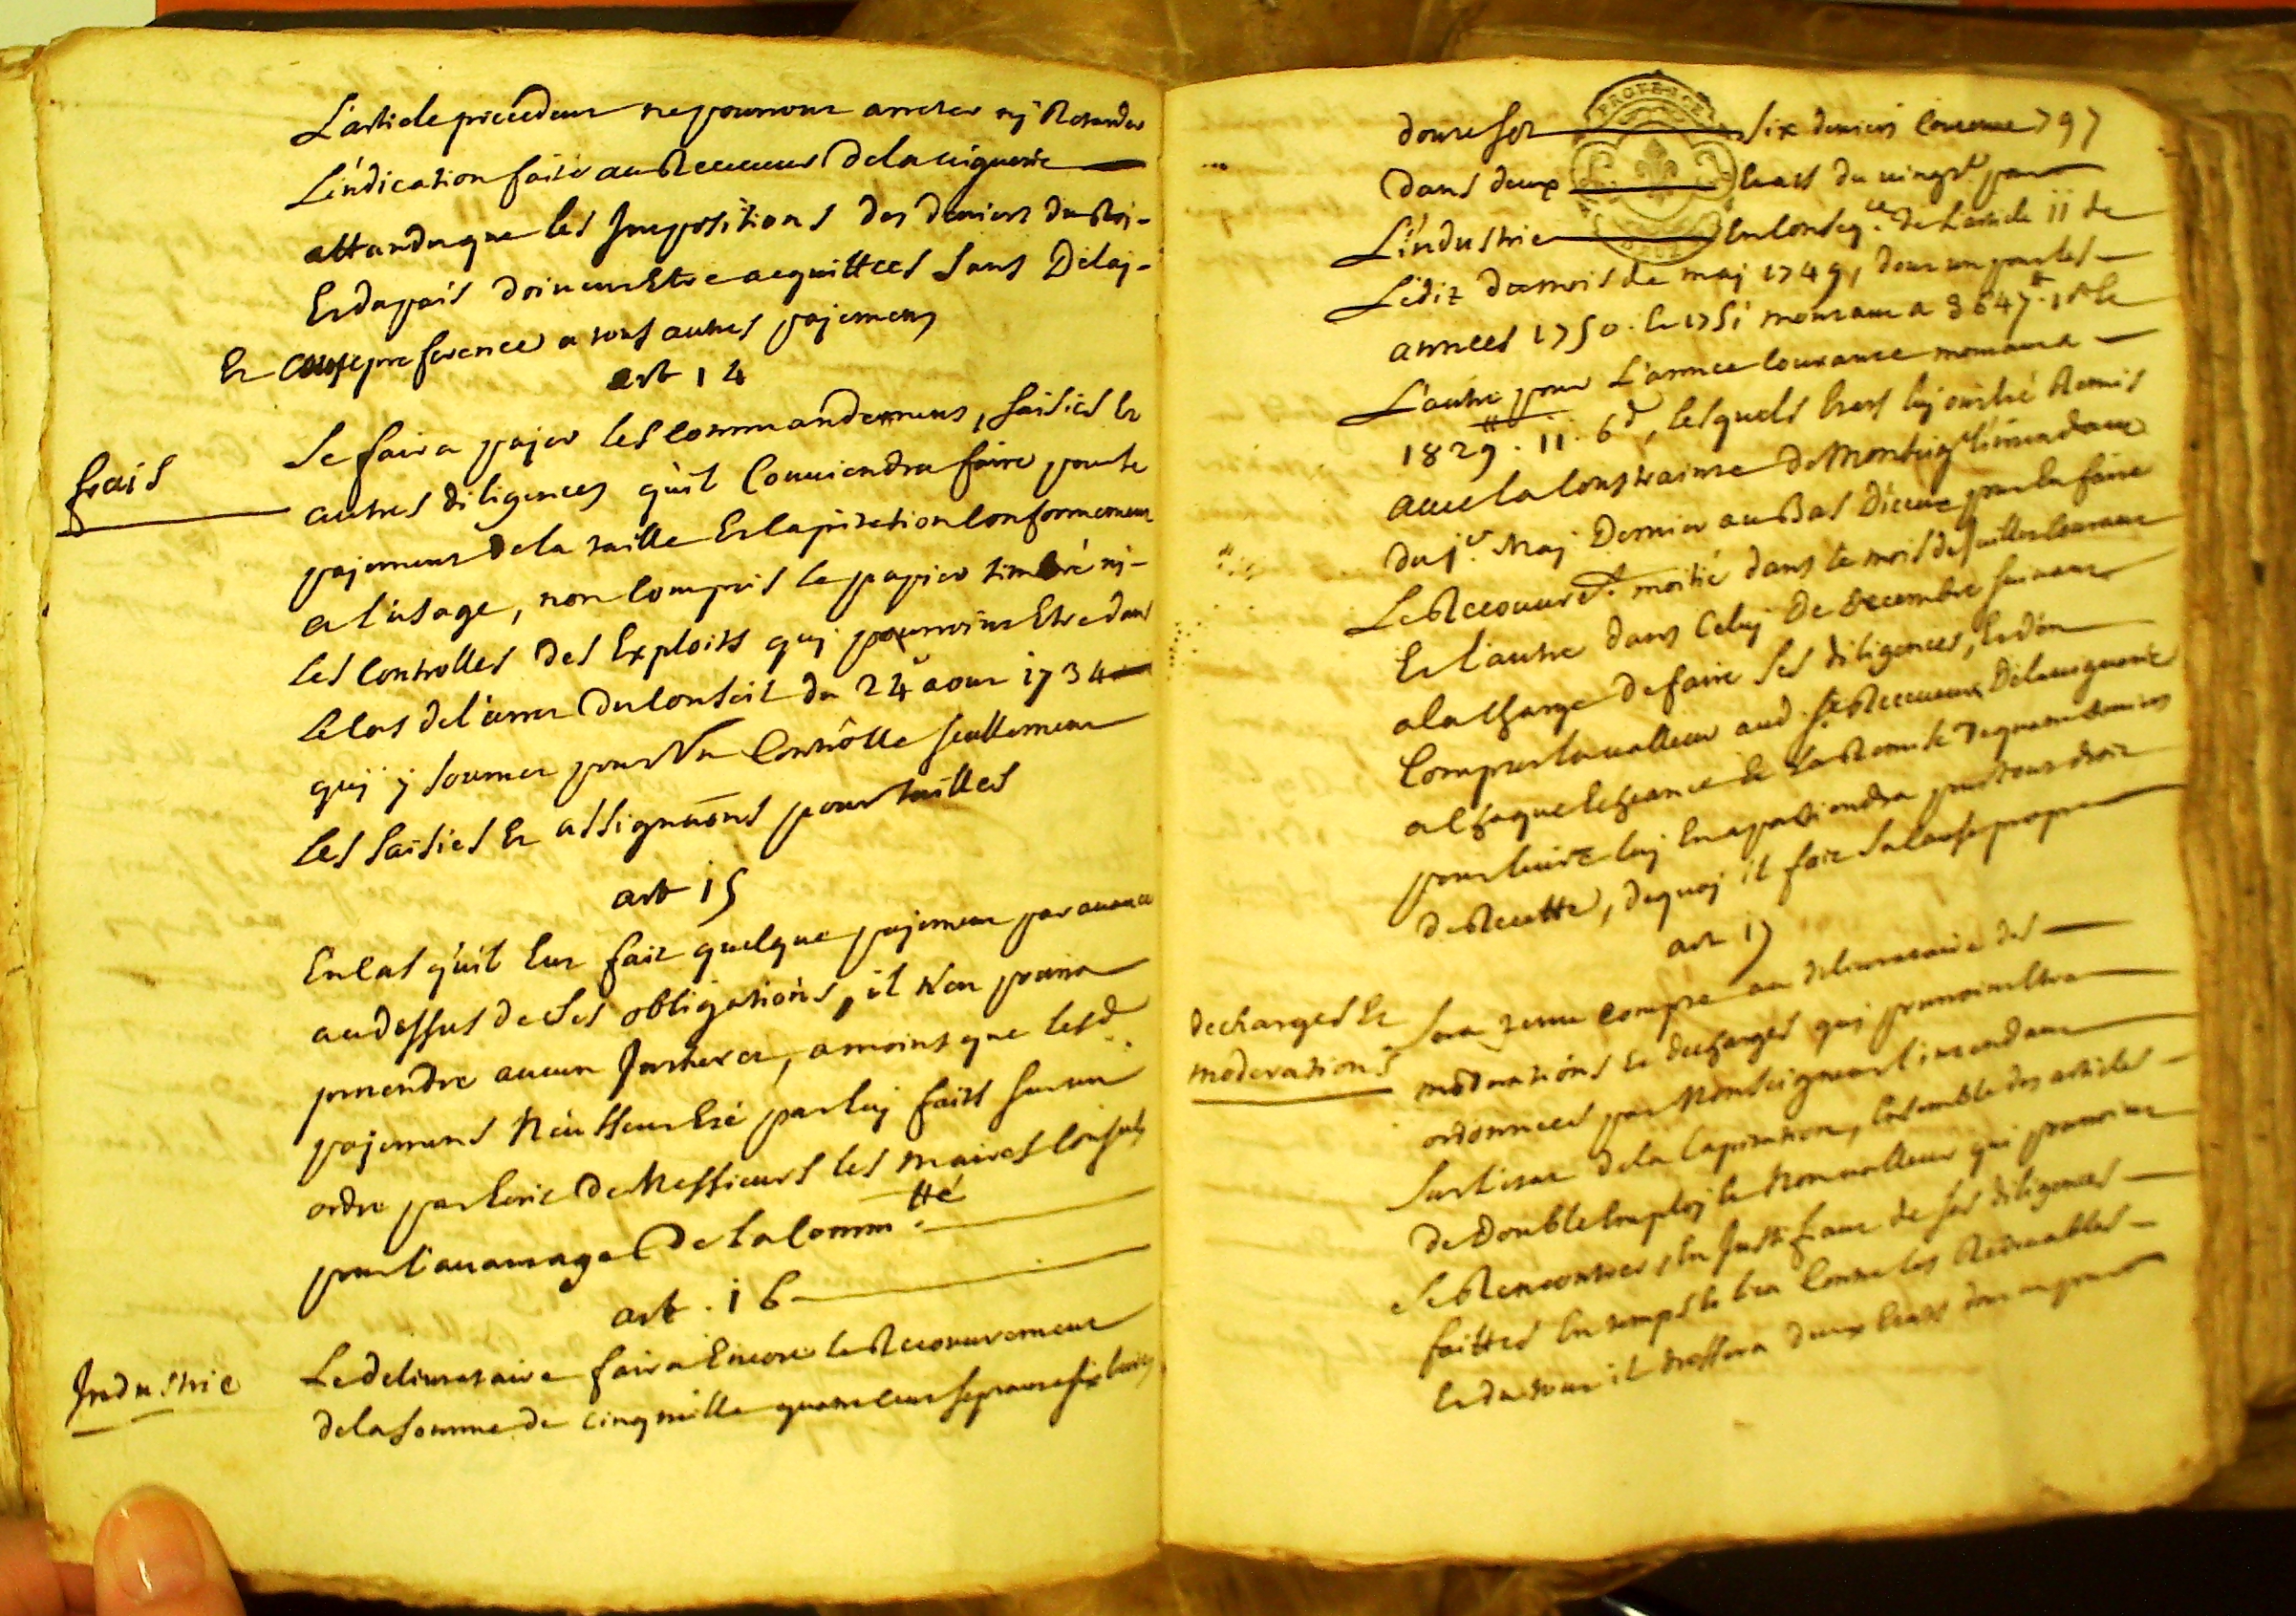 L'article précedent ne pourront arreter nj Retarder
L'indication faite au Receveur de la viguerie
attandu que les Impositions des deniers du Roj
Et du païs doivent Etre acquittées sans Délaj
Et preference a tous autres pajemens
art 14
frais
Se faira pajer les commandemens, saisies Et
autres diligences qu'il Conviendra faire pour le
pajement de la taille Et capitation Conformement
a l'usage, non Compris le papier timbré nj
les Controlles des Exploits quj pourroint Etre dans
le Cas de l'arret du Conseil du 24 aout 1734
quj j soumet pour Un Contrôlle seullement
les saisies Et assignaons pour tailles
art 15
En Cas qu'il Eut fait quelque pajement par avance
au dessus de ses obligations, il n'en pourra
pretendre aucun Interet, a moins que lesd
pajemens N'eussent Eté par luj faits sur un
ordre par Ecrit de Messieurs les maires Consuls
pour l'avantage de la Comm.tté
art. 16
Industrie
Le delivrataire faira Encore le Recouvrement
de la somme de cinq mille quatre cent septante six livres
PROVENCE
douze sol six deniers Contenue 797
dans deux Etats du vingt.e pour
L'industrie En Conseq.ce de L'article 11 de
L'édit du mois de maj 1749, dont un pour les
années 1750. Et 1751 montant a 3647# 1s Et
L'autre pour L'année Courante montant a
1829#. 11. 6d, lesquels Etats luj ont été Remis
avec la Contrainte de Monseig.r l'intendant
du j.er Maj Dernier au Bas D'iceux pour En faire
Le Recouvre.t moitié dans le mois de Juillet Courant
Et l'autre dans Celuj De decembre suivant
a la Charge de faire ses diligences, Et d'en
Compter la valleur aud. S.r Receveur De la viguerie
a Chaque Echeance Et la Remise De quatre deniers
pour livre luj En apartiendra pour tout droit
de Recette, de quoj il fait sa Cause propre
art 17
decharges Et
moderations
Sera tenu Compte au delivrataire des
moderations Et decharges quj pourroint Etre
ordonnées par Monseigneur l'intendant
Sur l'etat de la Capitation, Ensemble des articles
de Double Emploj Et Nonvalleur qui pourroint
se Rencontrer, En Justifiant de ses diligences
faittes En temps Et lieu Contre les Redevables
Et du tout il dressera deux Etats dont un pour